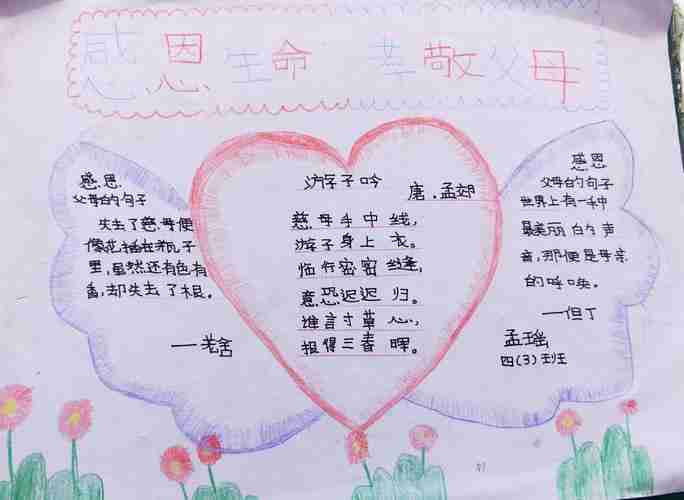 感恩生命 孝敬父母
感恩
父母的句子
失去了慈母便
像花插在瓶子
里,虽然还有色有
香,却失去了根。
——老舍
游子吟
唐.孟郊
慈母手中线,
游子身上衣。
临行密密缝,
意恐迟迟归。
谁言寸草心,
报得三春晖。
感恩
父母的句子
世界上有一种
最美丽的声
音,那便是母亲
的呼唤。
——但丁
孟瑶
四(3)班